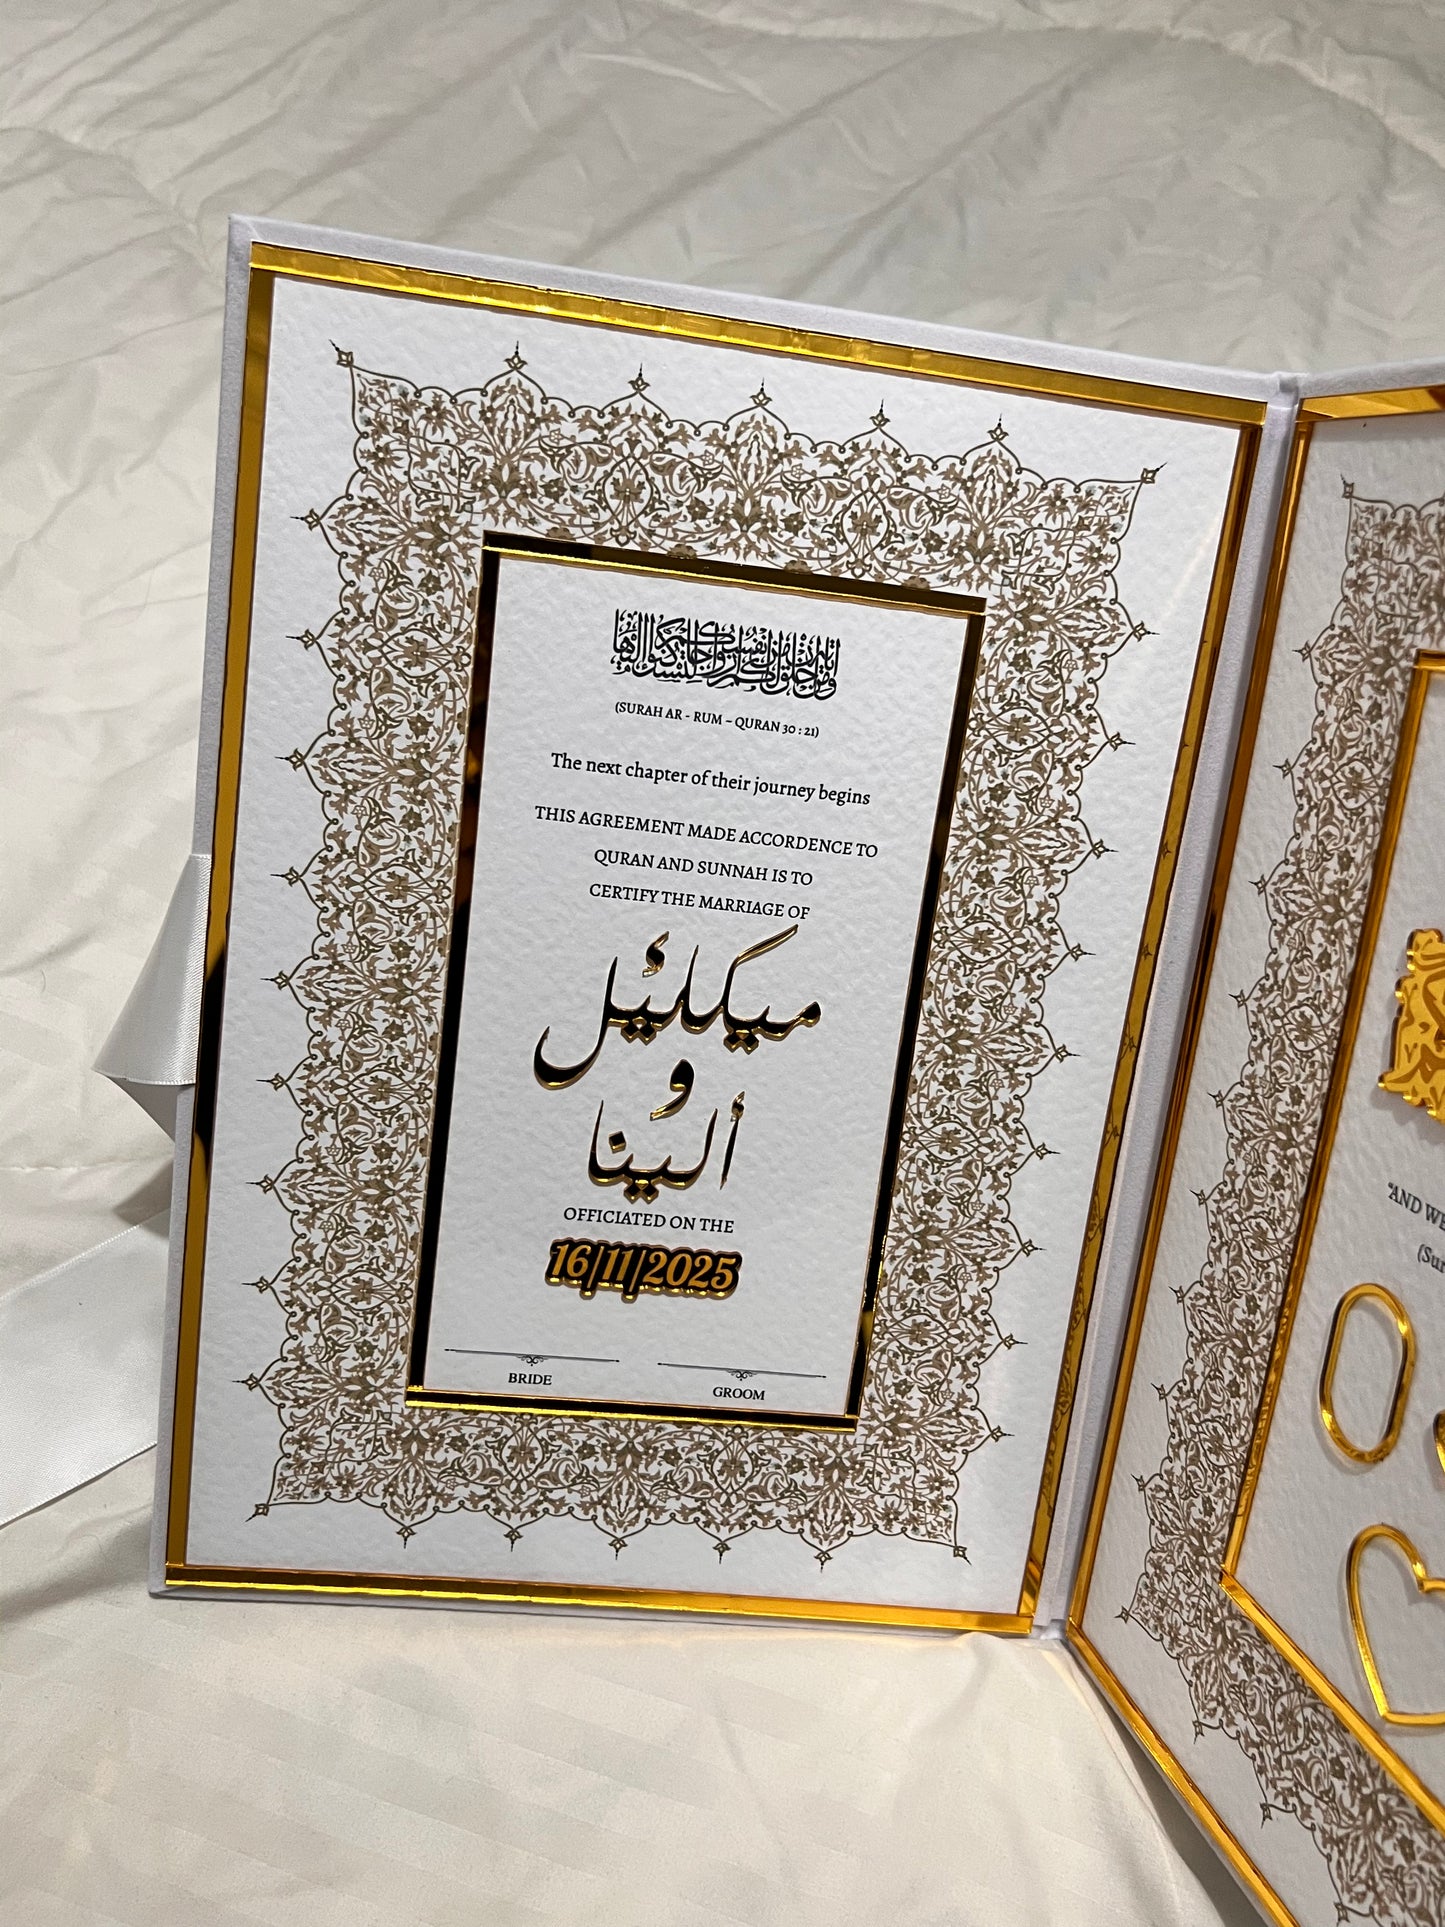 ومن آياته أن خلق لكم من أنفسكم أزواجا لتسكنوا إليها
(SURAH AR - RUM – QURAN 30 : 21)
The next chapter of their journey begins
THIS AGREEMENT MADE ACCORDENCE TO
QURAN AND SUNNAH IS TO
CERTIFY THE MARRIAGE OF
ميكئيل
و
ألينا
OFFICIATED ON THE
16/11/2025
BRIDE
GROOM
"AND WE